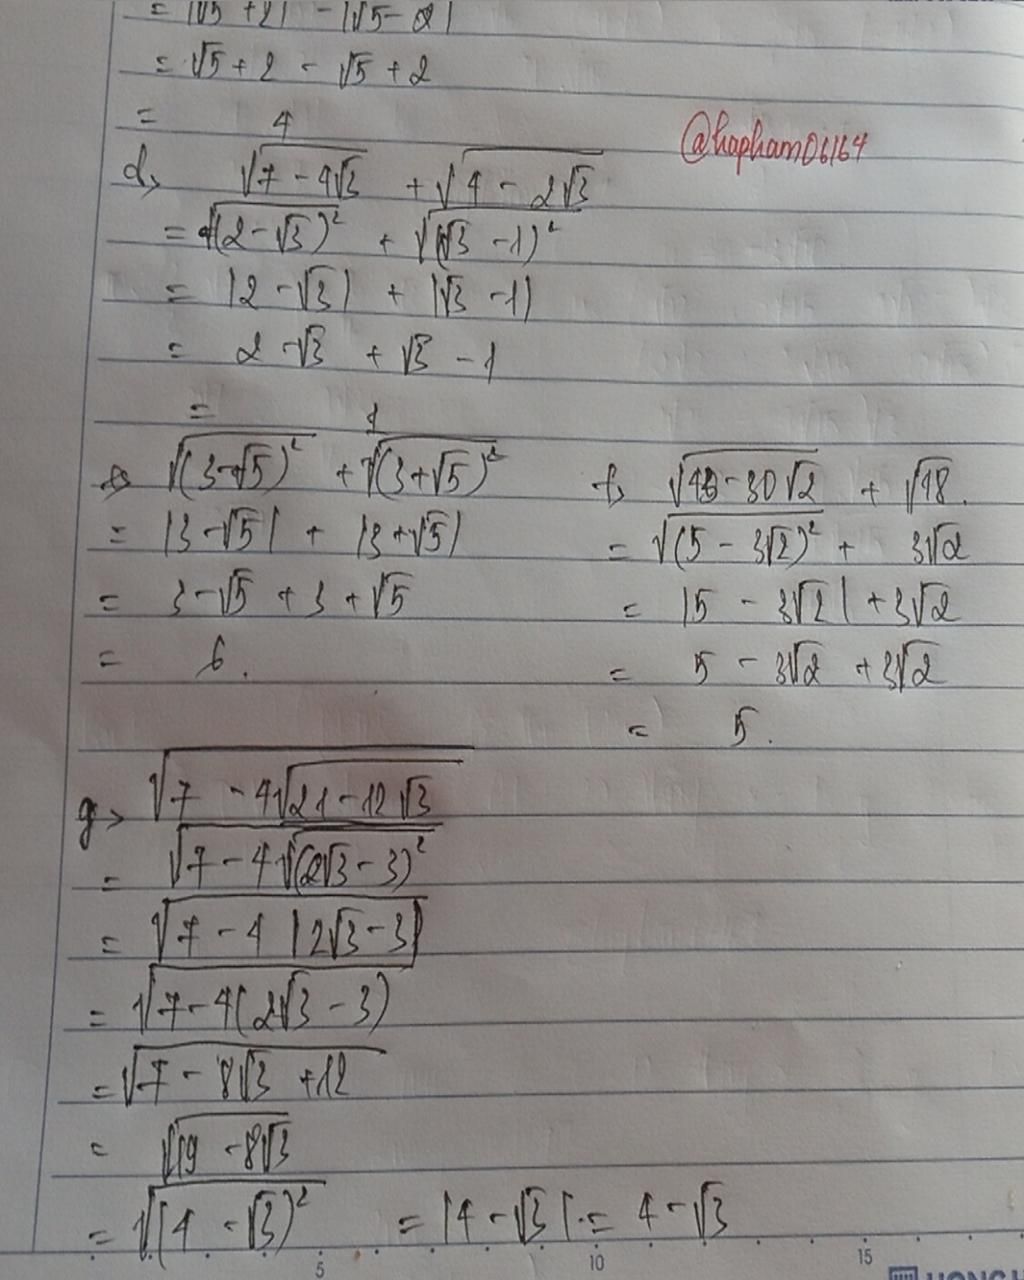 = |√5 + 2| - |√5 - 2|
= √5 + 2 - √5 + 2
= 4
@hapham06164
d, √(7 - 4√3) + √(4 - 2√3)
= √((2 - √3)²) + √((√3 - 1)²)
= |2 - √3| + |√3 - 1|
= 2 - √3 + √3 - 1
= 1
√((3 - √5)²) + √((3 + √5)²)
= |3 - √5| + |3 + √5|
= 3 - √5 + 3 + √5
= 6.
f, √(43 - 30√2) + √18.
= √((5 - 3√2)²) + 3√2
= |5 - 3√2| + 3√2
= 5 - 3√2 + 3√2
= 5.
g, √(7 - 4√(21 - 12√3))
= √(7 - 4√((2√3 - 3)²))
= √(7 - 4|2√3 - 3|)
= √(7 - 4(2√3 - 3))
= √(7 - 8√3 + 12)
= √(19 - 8√3)
= √((4 - √3)²) = |4 - √3| = 4 - √3
5 10 15